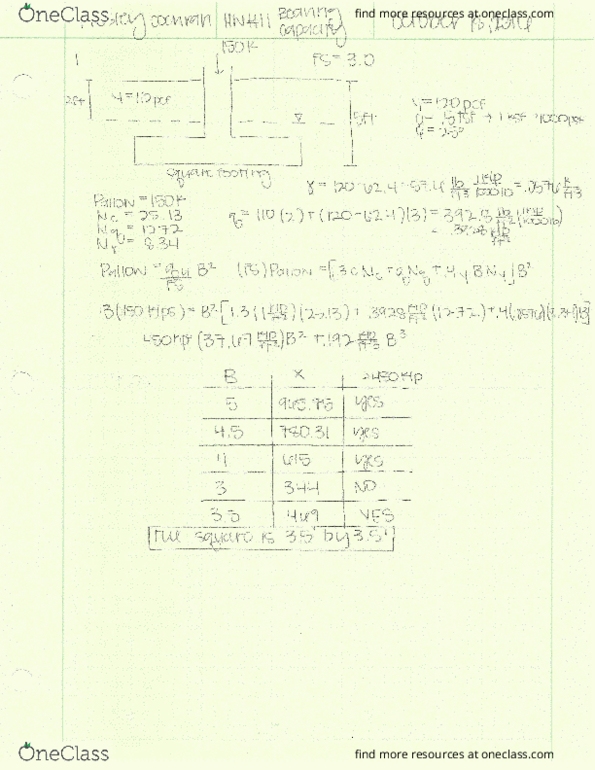 OneClass find more resources at oneclass.com
cochran HW#11 Bearing Capacity October
150K
FS = 3.0
1
2ft
γ = 110 pcf
5ft
γ = 120 pcf
→ 1 ksf
square footing
γ = 120 - 62.4 = 57.6 lb/ft3 = .0576 k/ft3
Pallow = 150K
Nc = 25.13
Nq = 12.72
Nγ = 8.34
q = 110(2) + (120-62.4)(3) = 392.8 lb/ft2 (1kip/1000lb)
= .3928 kip/ft2
Pallow = qu/FS B² (FS)Pallow = [1.3cNc + qNq + .4γBNγ]B²
3(150 kips) = B² [1.3(1 kip/ft2)(25.13) + .3928 kip/ft2 (12.72) + .4(.0576)(8.34)B]
450kip = (37.67 kip/ft2)B² + .192 kip/ft3 B³
B X ≥450kip
5 965.75 yes
4.5 780.31 yes
4 615 yes
3 344 NO
3.5 469 YES
The square is 3.5' by 3.5'
OneClass find more resources at oneclass.com